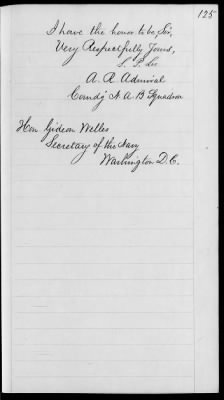 125
I have the honor to be, Sir,
Very Respectfully Yours,
S. P. Lee
A. R. Admiral
Comdg N. A. B. Squadron
Hon. Gideon Welles
Secretary of the Navy
Washington D.C.